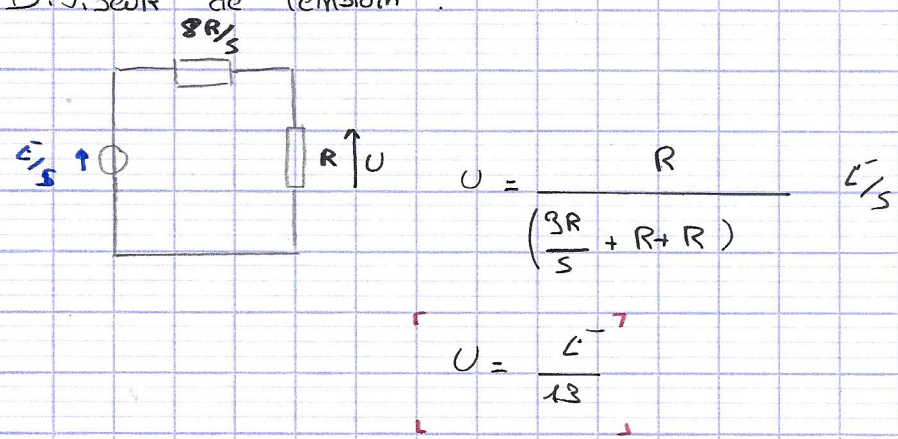 Diviseur de tension :
8R/5
E/5
R
U
U = R / (3R/5 + R + R) E/5
U = E/13